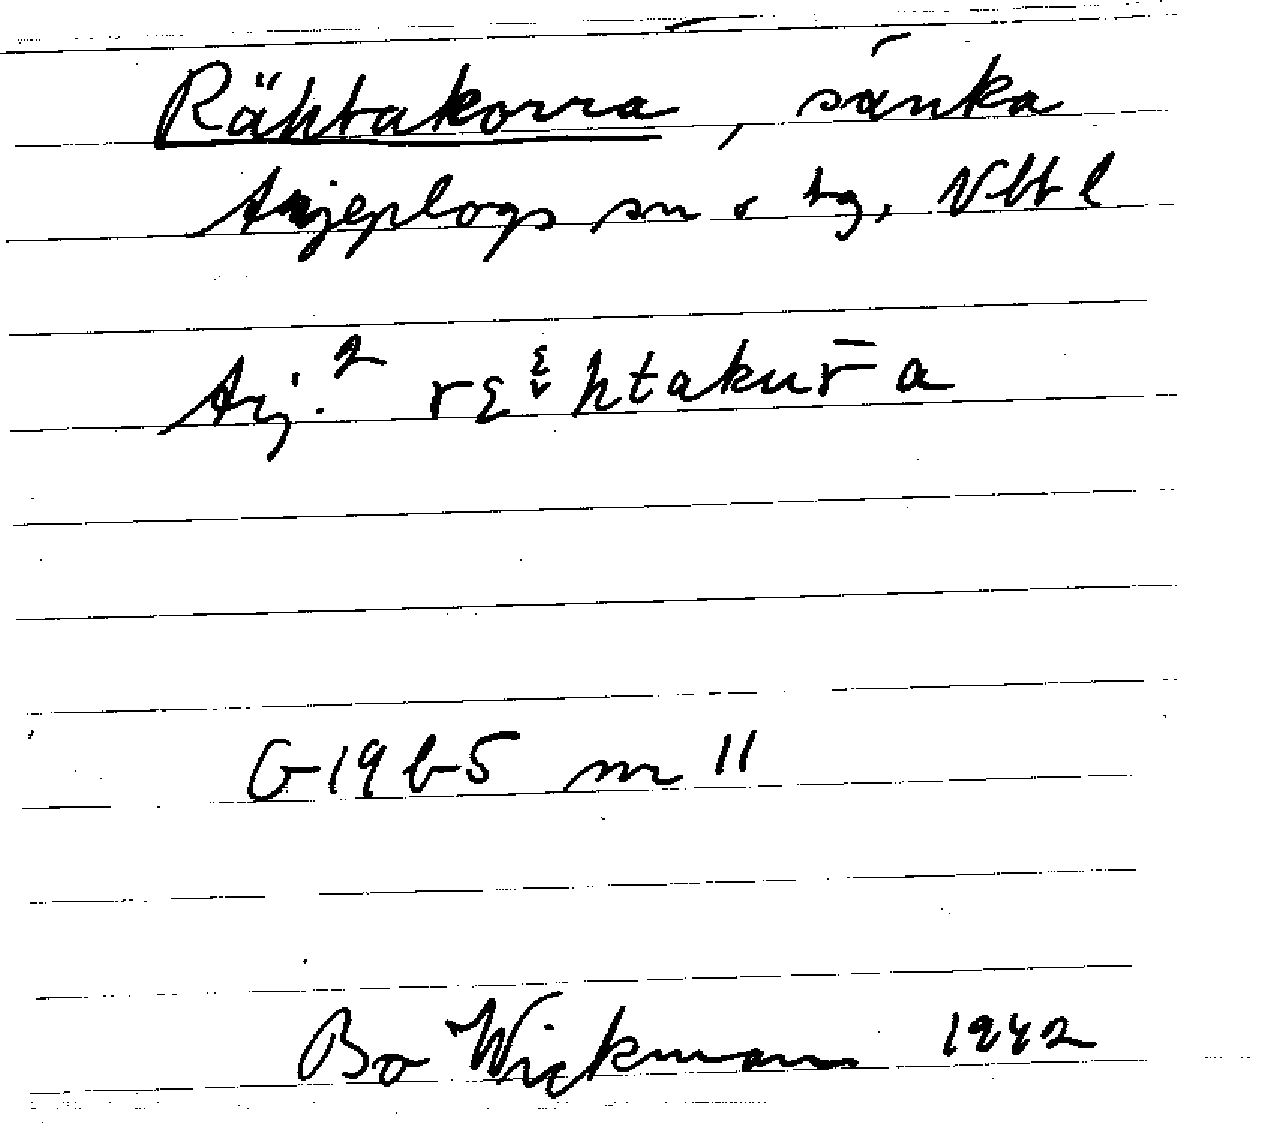 Rähtakorra, sänka
Arjeplogs sn o tg, Vbtl
Arj.² rεἐhtakur̄a
G 19 b 5 nr 11
Bo Wickman 1942